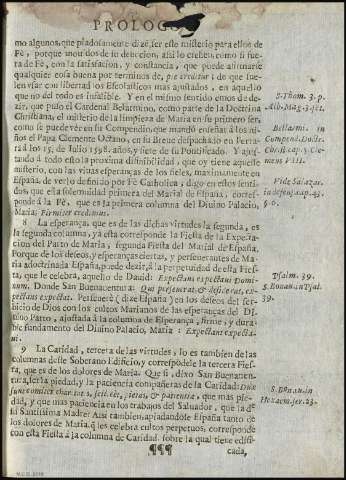 PROLOGO
mo algunos, que piadosamente dizē, ser este misterio para ellos de
Fè, porque mouidos de su deuocion, assi lo creìen, como si fue-
ra de Fè, con la satisfacion, y constancia, que puede afirmarse
qualquier cosa buena por terminos de, pie creditur; de que sue-
len vsar con libertad los Escolasticos mas ajustados, en aquello
que no del todo es infalible. Y en el mismo sentido emos de de-
zir, que puso el Cardenal Belarmino, como parte de la Doctrina
Christiana, el misterio de la limpieza de Maria en su primero ser,
como se puede vèr en su Compendio, que mandò enseñar à los ni-
ños el Papa Clemente Octauo, en su Breue despachado en Ferra-
rà à los 15. de Iulio 1598. años, y siete de su Pontificado. Y ajus-
tando à todo esto la proxima difinibilidad, que oy tiene aqueste
misterio, con las viuas esperanças de los fieles, maximamente en
España, de verlo definido por Fè Catholica, digo en estos senti-
dos, que esta solemnidad primera del Marial de España, corres-
ponde à la Fè, que es la primera columna del Diuino Palacio,
Maria: Firmiter credimus.
8 La esperança, que es de las dichas virtudes la segunda, es
la segunda columna, y à esta corresponde la Fiesta de la Expecta-
cion del Parto de Maria, segunda Fiesta del Marial de España.
Porque de los deseos, y esperanças ciertas, y perseuerantes de Ma-
ria adoctrinada España, puede dezir, à la perpetuidad de esta Fies-
ta, que le celebra, aquello de Dauid: Expectans expectaui Domi-
num. Donde San Buenauentura: Qui perseuerat & desiderat, ex-
pectans expectat. Perseuerè (dize España) en los deseos del ser-
bicio de Dios con los cultos Marianos de las esperanças del DI-
uino Parto, ajustada à la columna de Esperança, firme, y dura-
ble fundamento del Diuino Palacio, Maria: Expectans expecta-
ui.
9 La Caridad, tercera de las virtudes, lo es tambien de las
columnas deste Soberano Edificio, y correspōdele la tercera Fies-
ta, que es de los dolores de Maria. Que si, dixo San Buenauen-
tura, ser la piedad, y la paciencia compañeras de la Caridad: Duæ
sunt comites charitatis, scilicet, pietas, & patientia, que mas pie-
dad, y que mas paciencia en los trabajos del Saluador, que la de
su Santissima Madre? Assi tambien, apiadandose España tanto de
los dolores de Maria, q̄ les celebra cultos perpetuos, corresponde
con esta Fiesta à la columna de Caridad, sobre la qual tiene edifi-
¶¶¶ cada,
S. Thom. 3. p.
Alb. Mag. 3. dist.
Bellarmi. in
Compend. Doctr.
Christ. cap. 3. Cle-
mens VIII.
Vide Salazar.
in defens. cap. 43.
§. 6.
Psalm. 39.
S. Bonau. in Psal.
39.
S. Bonau. in
Hexaem. ser. 23.